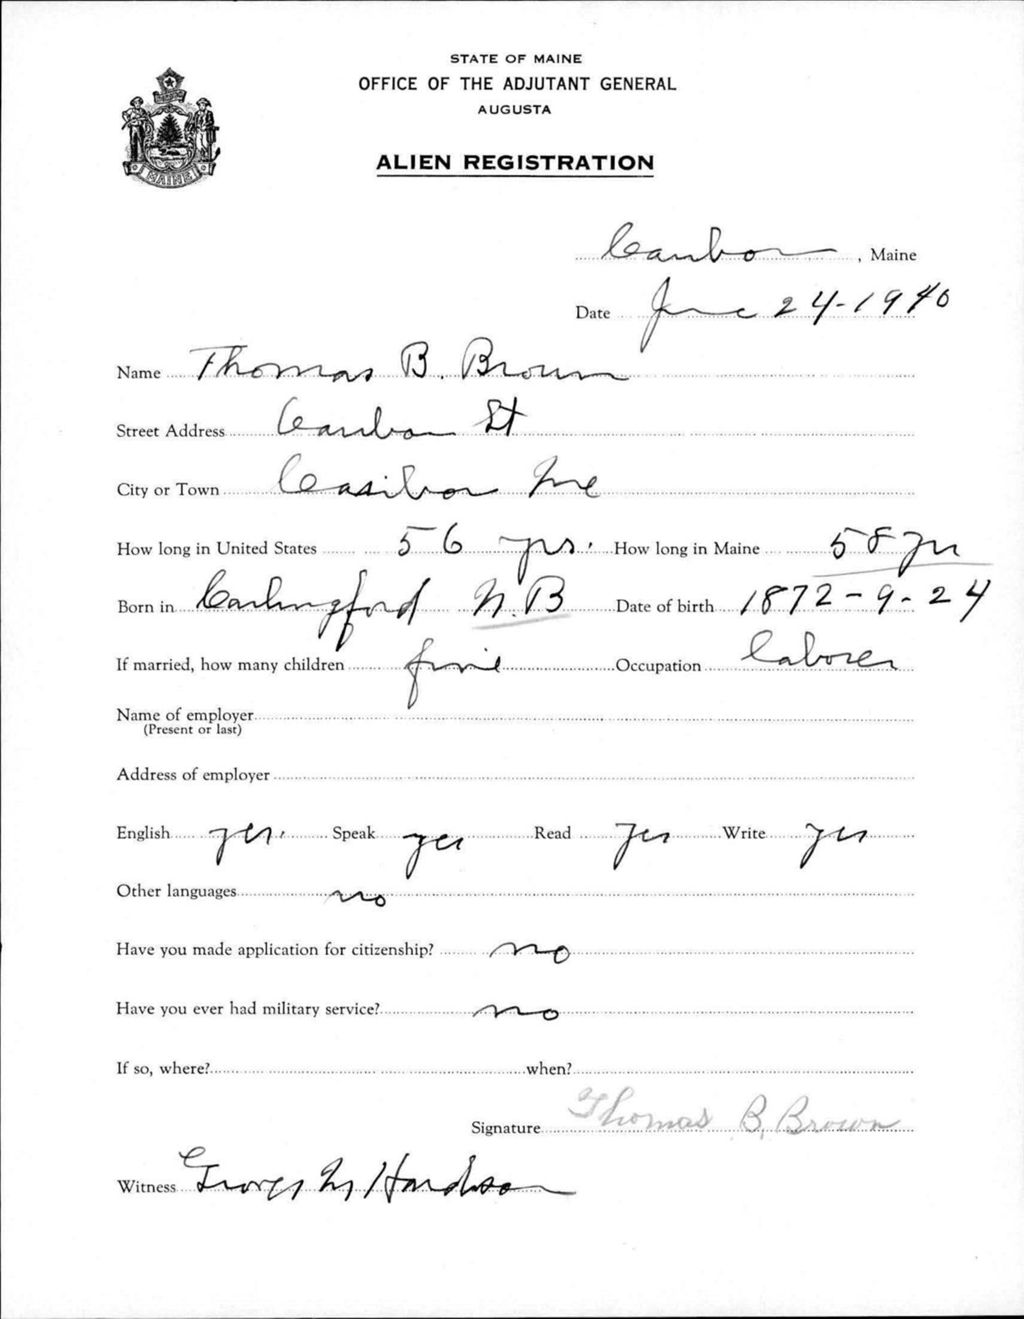 STATE OF MAINE
OFFICE OF THE ADJUTANT GENERAL
AUGUSTA
MAINE
ALIEN REGISTRATION
Caribou, Maine
Date June 24-1940
Name Thomas B. Brown
Street Address Caribou St
City or Town Caribou Me
How long in United States 56 yrs. How long in Maine 58 yr
Born in Carlingford N.B Date of birth 1872-9-24
If married, how many children five Occupation laborer
Name of employer
(Present or last)
Address of employer
English yes. Speak yes Read Yes Write yes
Other languages no
Have you made application for citizenship? no
Have you ever had military service? no
If so, where? when?
Signature Thomas B. Brown
Witness George M Hardison